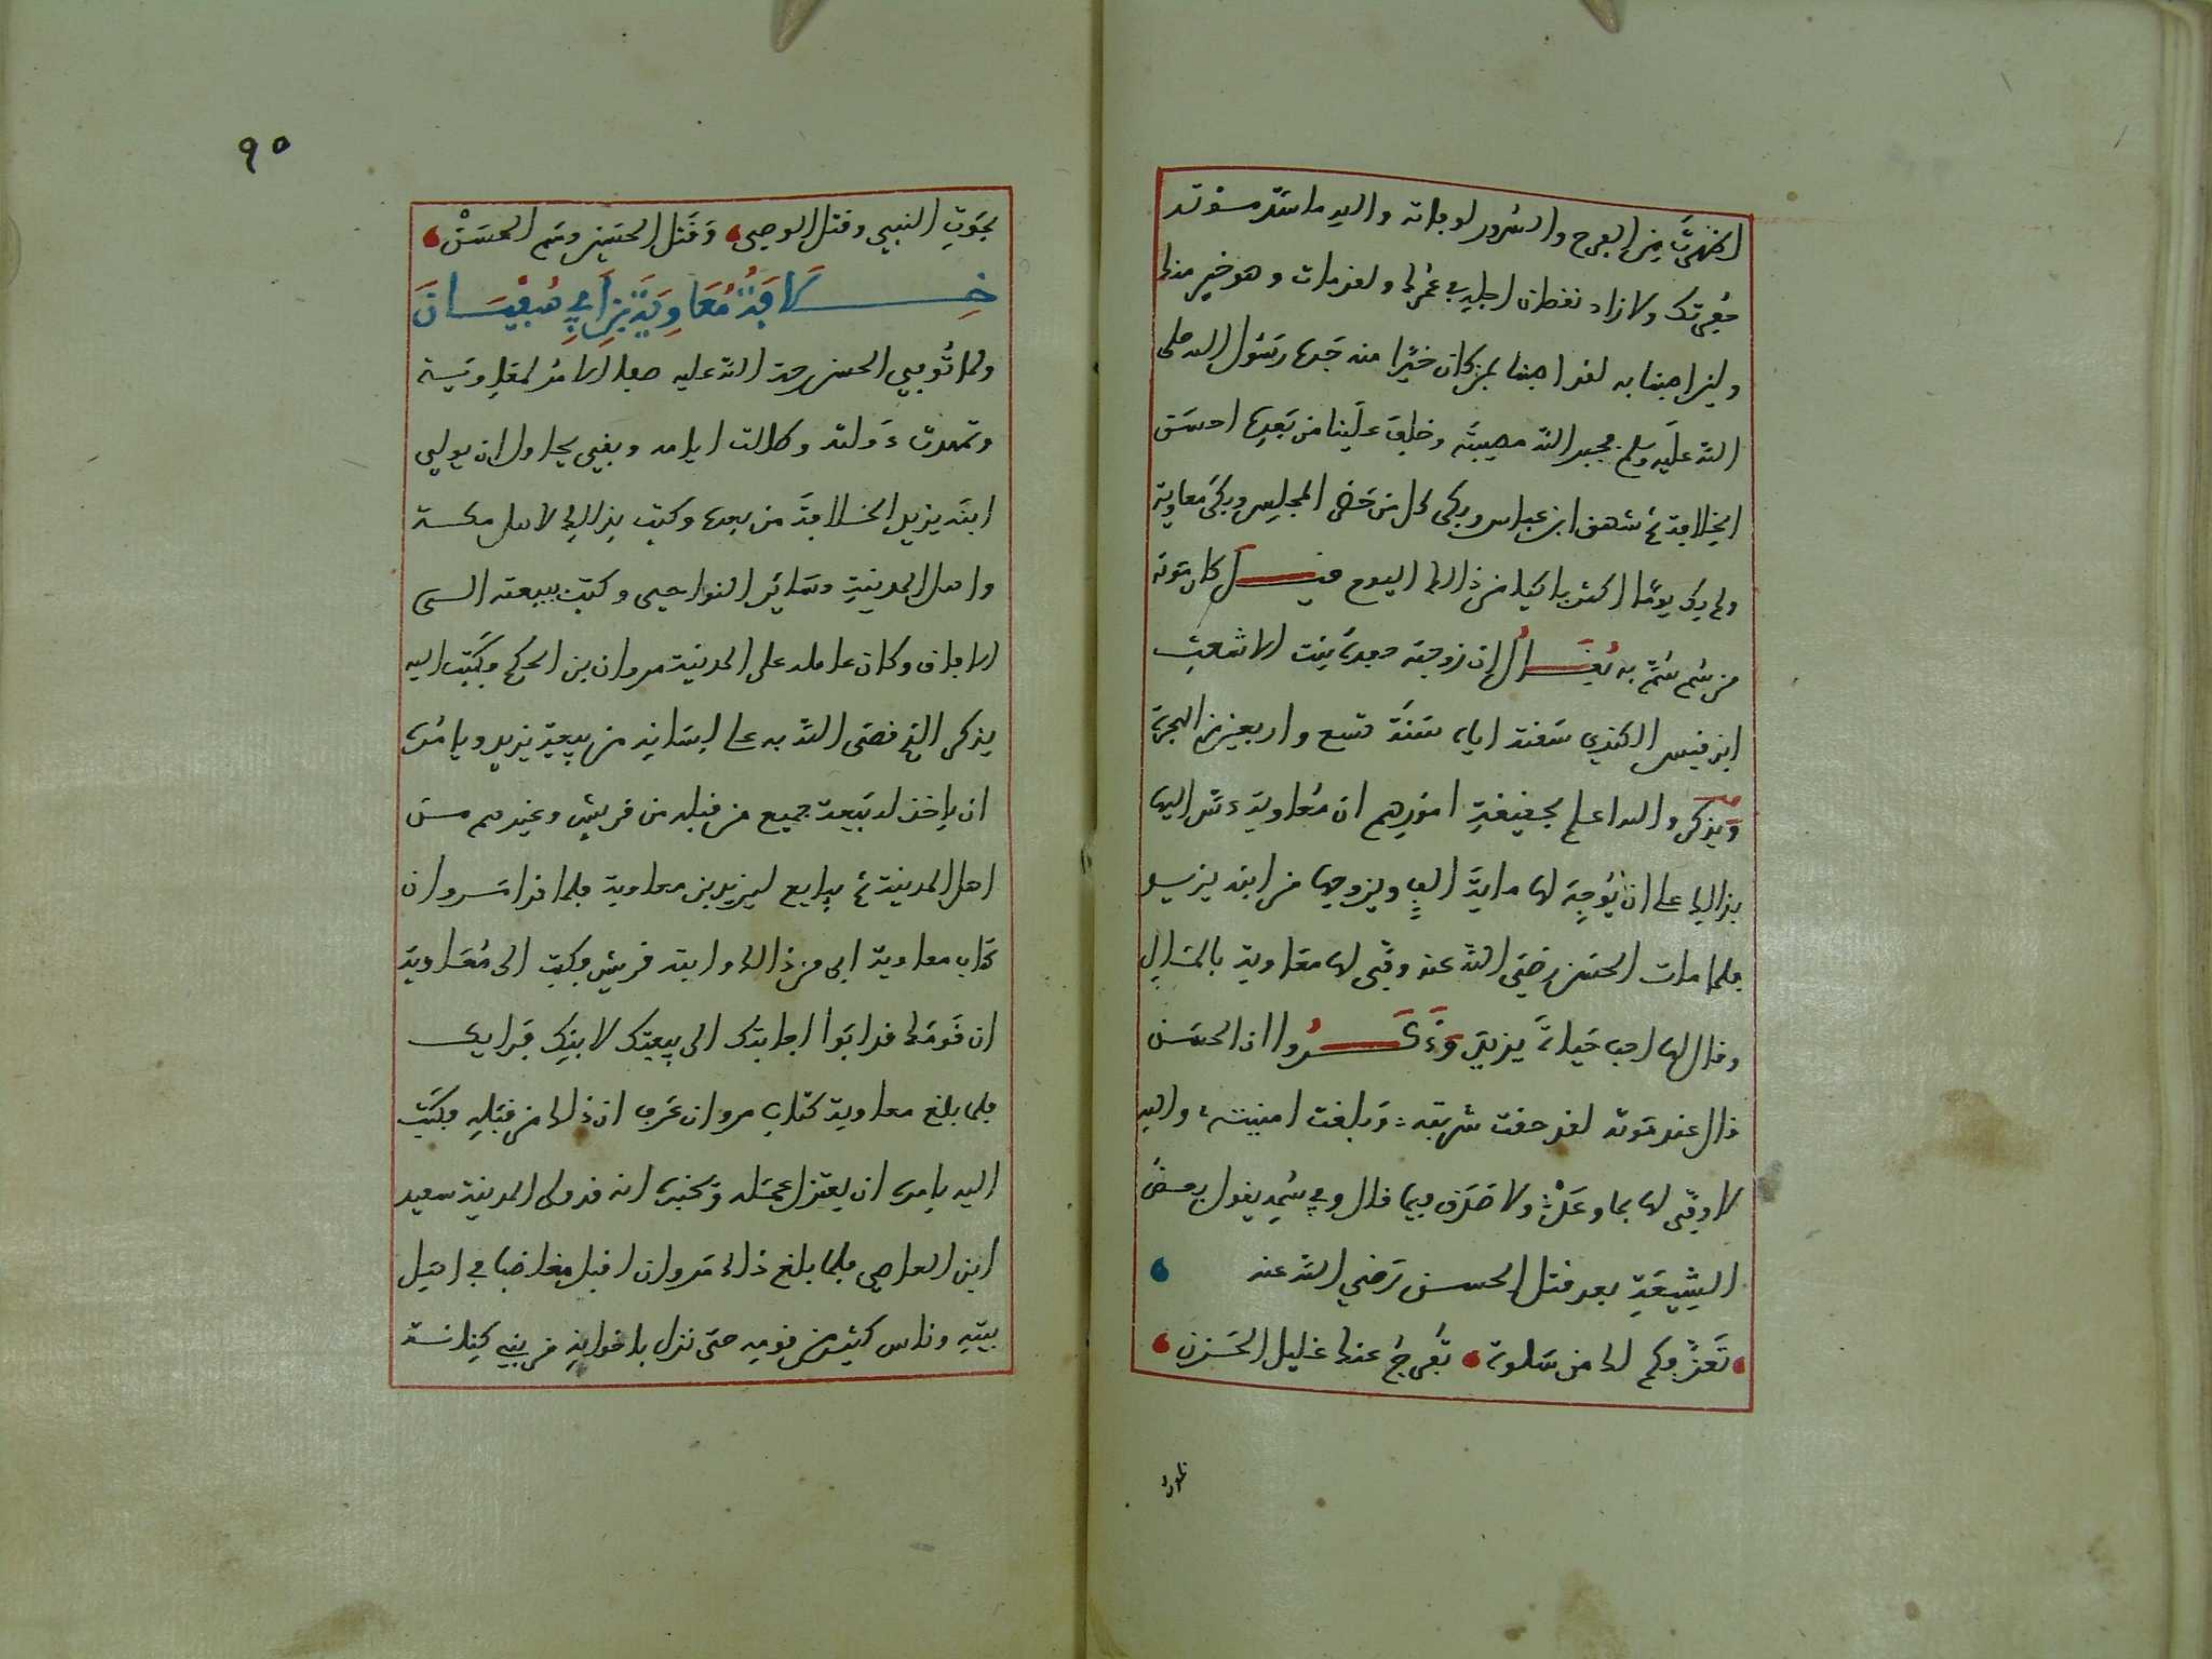 اظهرت من الفرح والسرور لوفاته والله ما سد موته
حفرتك ولا زاد نقصان اجله في عمرك ولقد مات وهو خير منك
ولين اصبنا به لقد اصبنا بمن كان خيرا منه جده رسول الله صلى
الله عليه وسلم فجبر الله مصيبته وخلف علينا من بعده احسن
الخلافة ثم شهق ابن عباس وبكى كل من حضر المجلس وبكى معاوية
ولم يك يوما اكثر باكيا من ذالك اليوم قيل كان موته
من سم سم به يقال ان زوجته جعدة بنت الاشعث
ابن قيس الكندي سقته اياه سنة تسع واربعين من الهجرة
ويذكر والله اعلم بحقيقة امورهم ان معاوية دس اليها
بذالك على ان يوجه لها ماية الف ويزوجها من ابنه يزيد
فلما مات الحسن رضي الله عنه وفى لها معاوية بالمال
وقال لها احب حياة يزيد وذكروا ان الحسن
قال عند موته لقد حفت شربته وبلغت امنيته والله
لا وفى لها بما وعد ولا صدق فيما قال وفي سمه يقول بعض
الشيعة بعد قتل الحسن رضي الله عنه
تعز فكم لك من سلوة تفرج عنك غليل الحزن
بموت النبي وقتل الوصي وقتل الحسين وسم الحسن
خلافة معاوية بن ابي سفيان
ولما توفي الحسن رحمة الله عليه صفا الامر لمعاوية
وتمهدت دولته وطالت ايامه وبقي يحاول ان يولي
ابنه يزيد الخلافة من بعده وكتب بذالك لاهل مكة
واهل المدينة وساير النواحي وكتب ببيعته الى
الافاق وكان عامله على المدينة مروان بن الحكم فكتب اليه
يذكر الذي قضى الله به على لسانه من بيعة يزيد ويامره
ان ياخذ له بيعة جميع من قبله من قريش وغيرهم من
اهل المدينة ثم يبايع ليزيد بن معاوية فلما قرا مروان
كتاب معاوية ابى من ذالك وابته قريش فكتب الى معاوية
ان قومك قد ابوا اجابتك الى بيعتك لابنك فرايك
فلما بلغ معاوية كتاب مروان عرف ان ذالك من قبله فكتب
اليه يامره ان يعتزل عمله ويخبره انه قد ولى المدينة سعيد
ابن العاصي فلما بلغ ذالك مروان اقبل مغاضبا في اهل
بيته وناس كثير من قومه حتى نزل باخواله من بني كنانة
٩٥